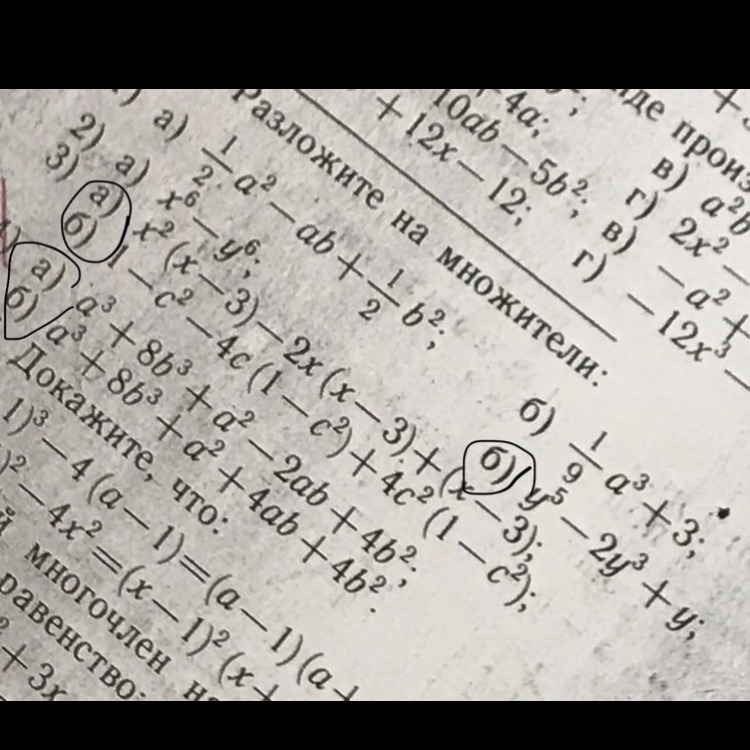 +4a;
10ab − 5b²;
+ 12x − 12;
в) a²b
г) 2x² −
в) −a² +
г) −12x³ −
Разложите на множители:
а) 1/2 a² − ab + 1/2 b²; б) 1/9 a³ + 3;
2) а) x⁶ − y⁶; б) y⁵ − 2y³ + y;
3) а) x² (x − 3) − 2x (x − 3) + (x − 3);
б) 1 − c² − 4c (1 − c²) + 4c² (1 − c²);
а) a³ + 8b³ + a² − 2ab + 4b²;
б) a³ + 8b³ + a² + 4ab + 4b².
Докажите, что:
1)³ − 4 (a − 1) = (a − 1) (a +
)² − 4x² = (x − 1)² (x +
й многочлен
равенство:
+ 3x